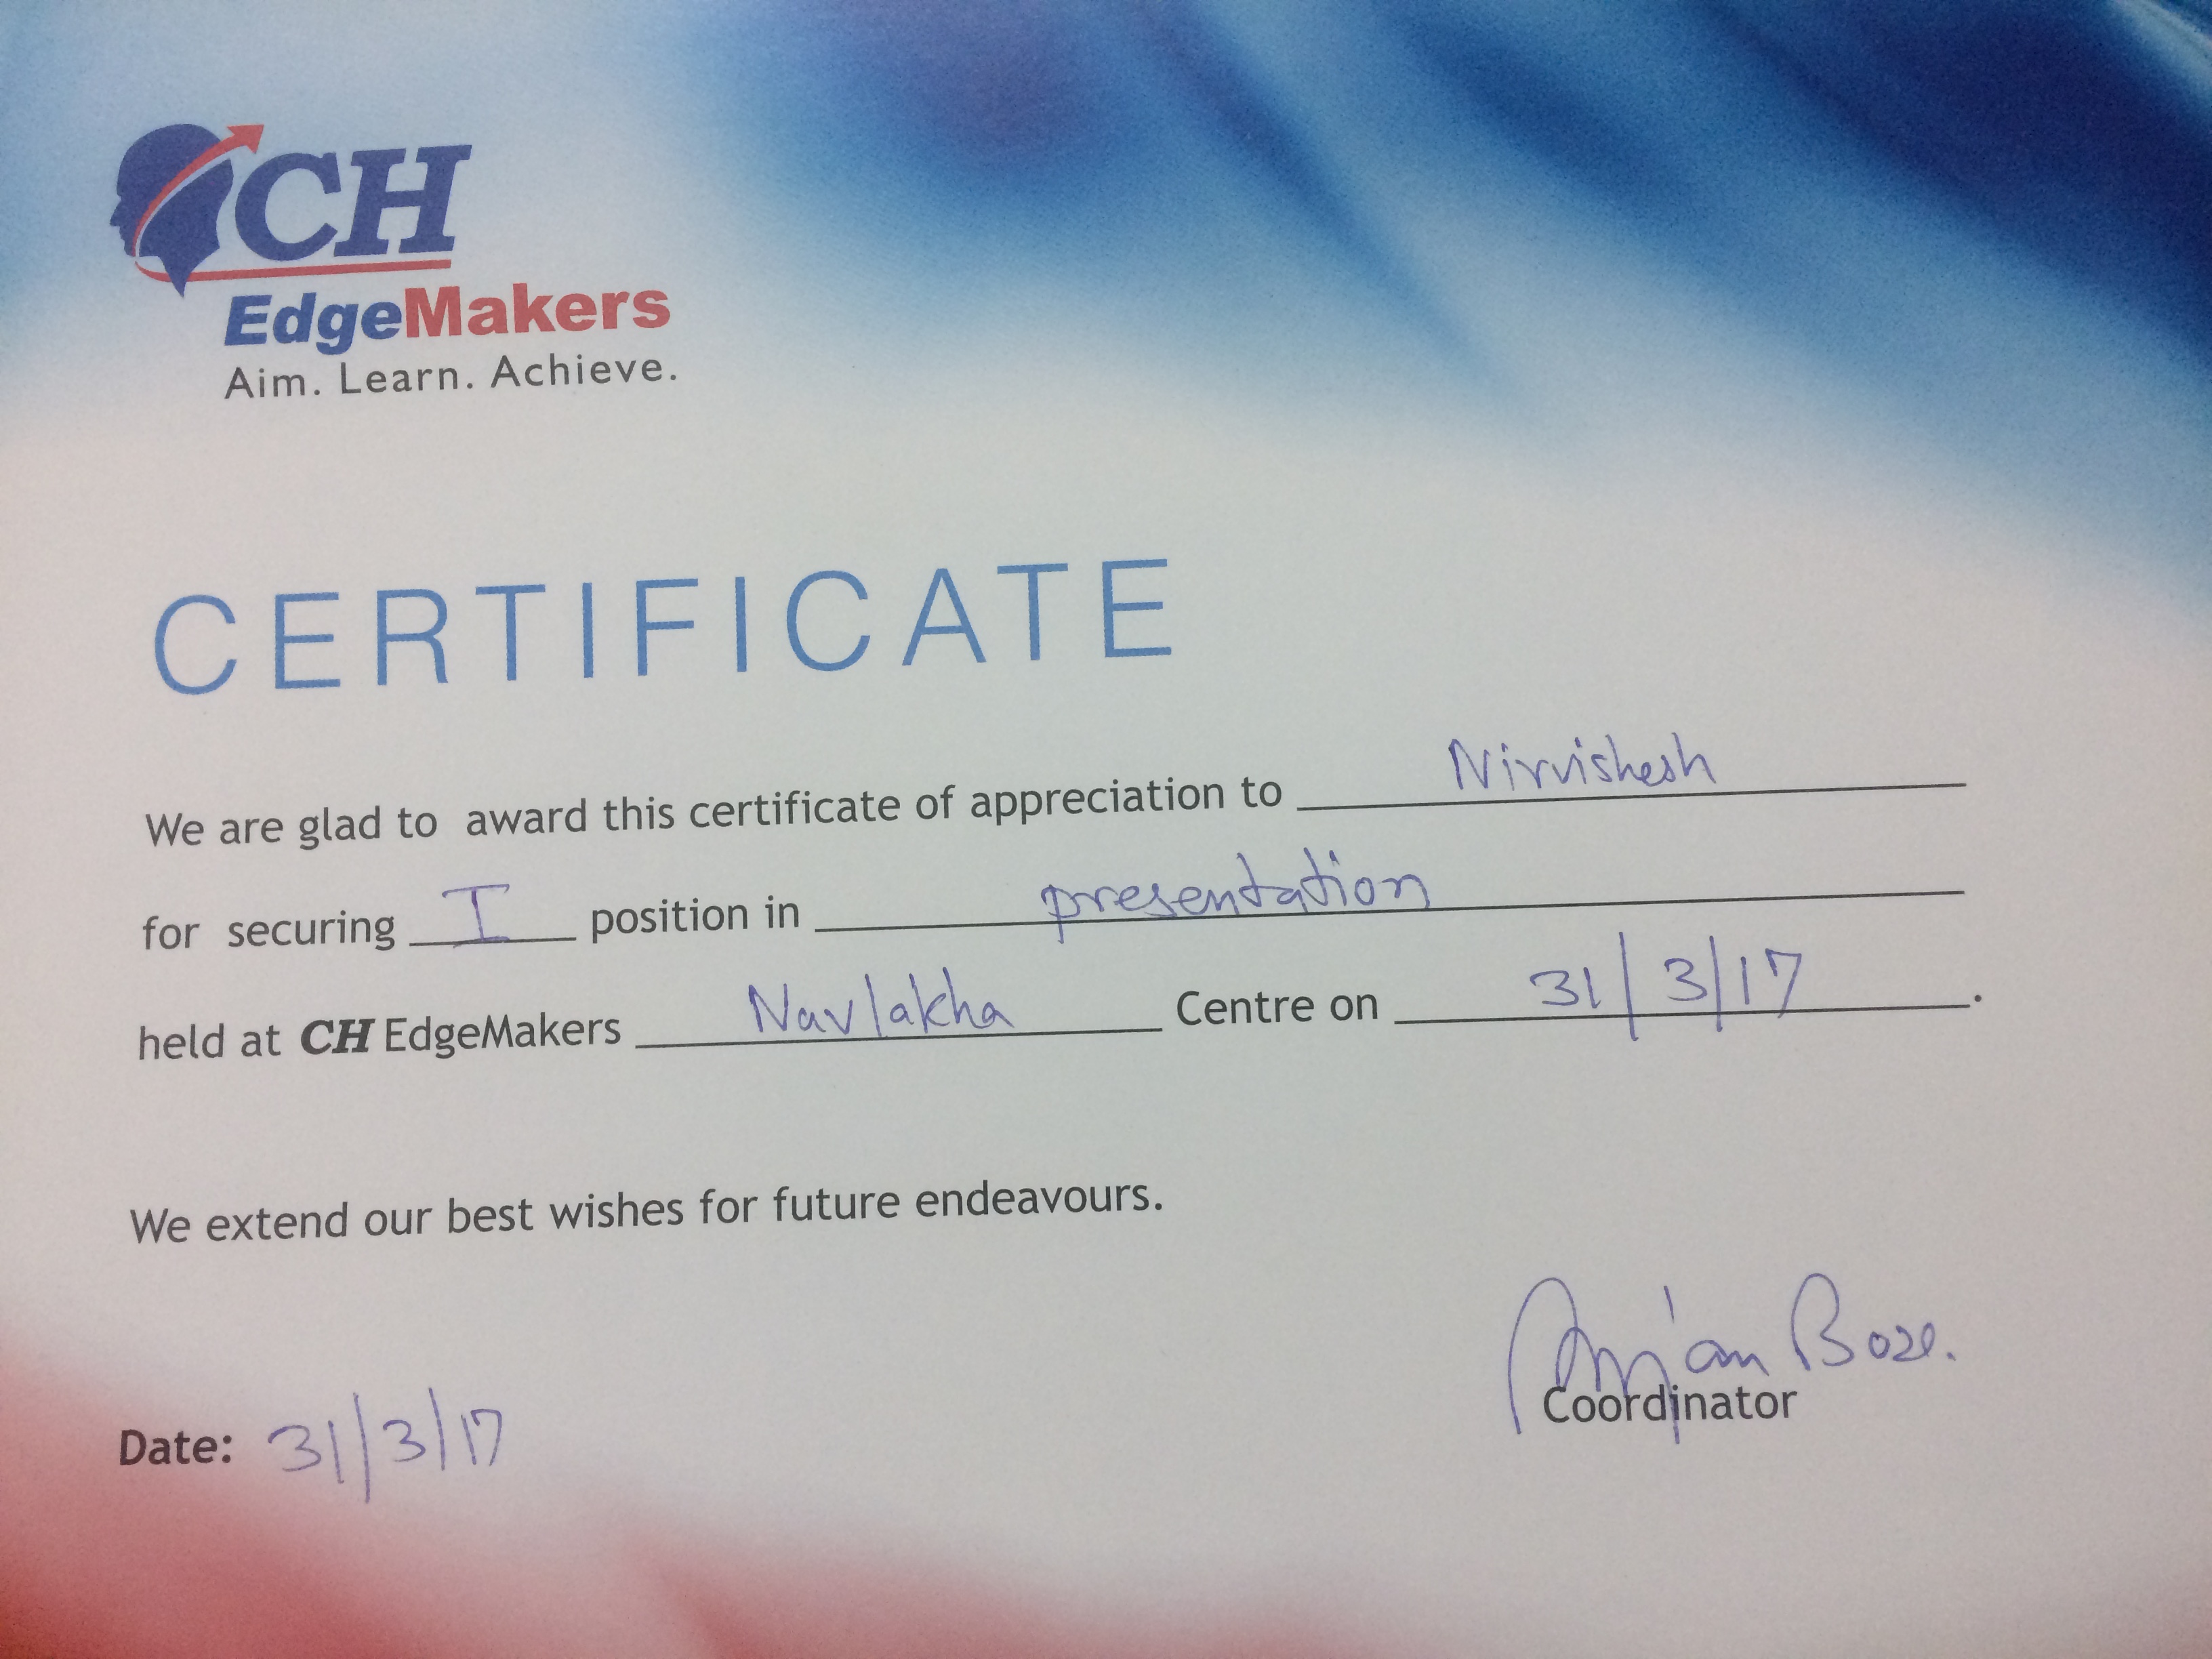 CH
EdgeMakers
Aim. Learn. Achieve.
CERTIFICATE
We are glad to award this certificate of appreciation to Nirvishesh
for securing I position in presentation
held at CH EdgeMakers Navlakha Centre on 31/3/17.
We extend our best wishes for future endeavours.
Bose.
Coordinator
Date: 31/3/17